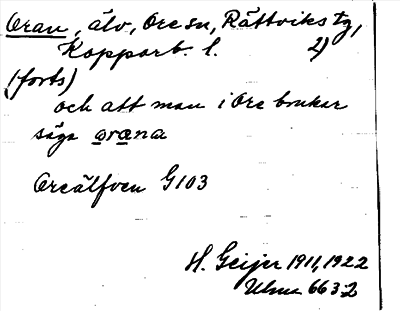 Oran, älv, Ore sn, Rättviks tg,
Kopparb. l. 2)
(forts)
och att man i Ore brukar
säga orena
Oreälfven G103
H. Geijer 1911, 1922
Ulma 663:2